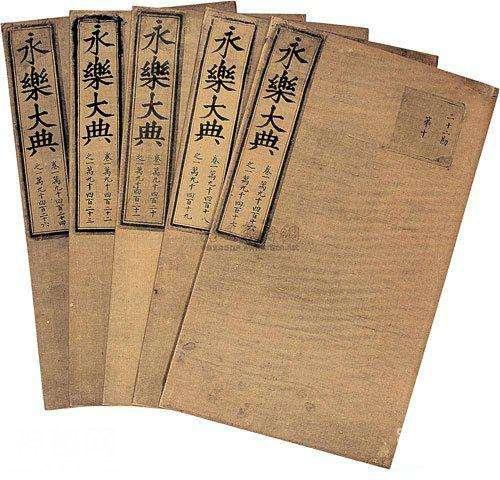 永樂大典
卷一萬九千四百二十四
之一萬九千四百二十六
永樂大典
卷一萬九千四百二十二
之一萬九千四百二十三
永樂大典
卷一萬九千四百二十
之一萬九千四百二十一
永樂大典
卷一萬九千四百十八
之一萬九千四百十九
永樂大典
卷一萬九千四百十六
之一萬九千四百十
第十